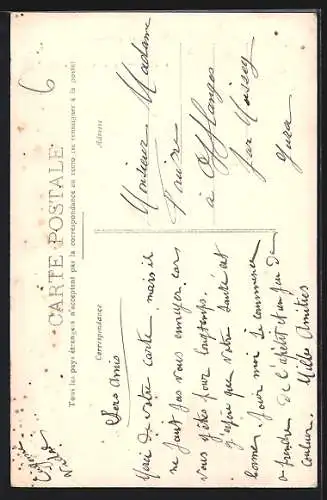 CARTE POSTALE
Tous les pays étrangers n'acceptent pas la correspondance au recto, se renseigner à la poste
Correspondance
Adresse
6
Chers Amis
Merci de votre carte mais il
ne faut pas vous ennuyer car
vous y êtes pour longtemps.
J'espère que votre santé est
bonne. Pour moi je commence
a prendre de l'apétit et un peu de
couleur. Mille Amitiés
Monsieur Madame
à Offlanges
par Moissey
Jura